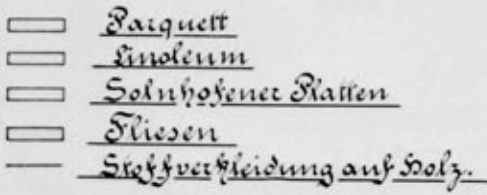 Parquett
Linoleum
Solnhofener Platten
Fliesen
Stoffverkleidung auf Holz.